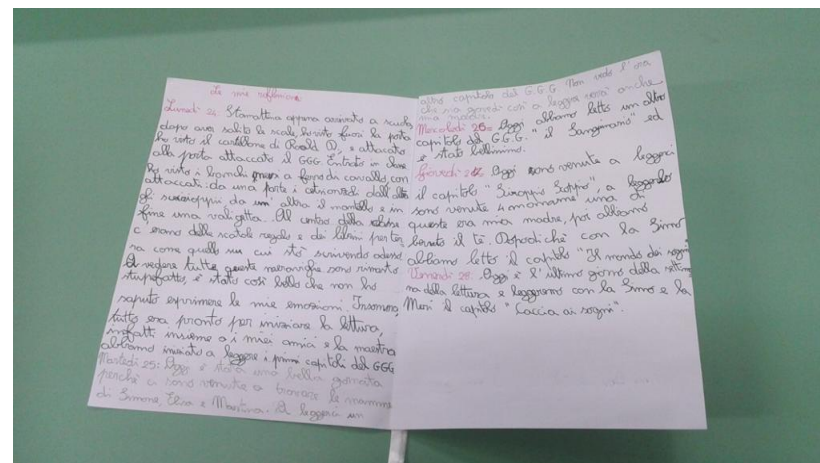 Le mie riflessioni
Lunedì 24. Stamattina appena arrivato a scuola
dopo aver salito le scale, ho visto fuori la porta
ho visto il cartellone di Roald D, e attaccato
alla porta attaccato il GGG. Entrato in classe
ho visto i banchi messi a ferro di cavallo, con
attaccati: da una parte i cetrionzoli dall'altra
gli sciroppii da un'altra il mantello e in
fine una valigetta. Al centro della classe
c'erano delle scatole regalo e dei librini per ter
ra come quello su cui stò scrivendo adesso
A vedere tutte queste meraviglie sono rimasto
stupefatto, è stato così bello che non ho
saputo esprimere le mie emozioni. Insomma,
tutto era pronto per iniziare la lettura,
infatti insieme a i miei amici e la maestra
abbiamo iniziato a leggere i primi capitoli del GGG
Martedì 25: Oggi è stata una bella giornata
perché ci sono venute a trovare le mamme
di Simone, Elisa e Martina. A leggerci un
altro capitolo del G.G.G Non vedo l'ora
che sia giovedì così a leggere verrà anche
mia madre.
Mercoledì 26: Oggi abbiamo letto un altro
capitolo del G.G.G. "il Sanguinario" ed
è stato bellissimo.
Giovedì 27: Oggi sono venute a leggerci
il capitolo "Sciroppio Scoppio", a leggerlo
sono venute 4 mamme una di
queste era mia madre, poi abbiamo
bevuto il tè. Dopodiché con la Simo
abbiamo letto il capitolo "Il mondo dei sogni
Venerdì 28. Oggi è l'ultimo giorno della settima
na della lettura e leggeremo con la Simo e la
Meri il capitolo "Caccia ai sogni".